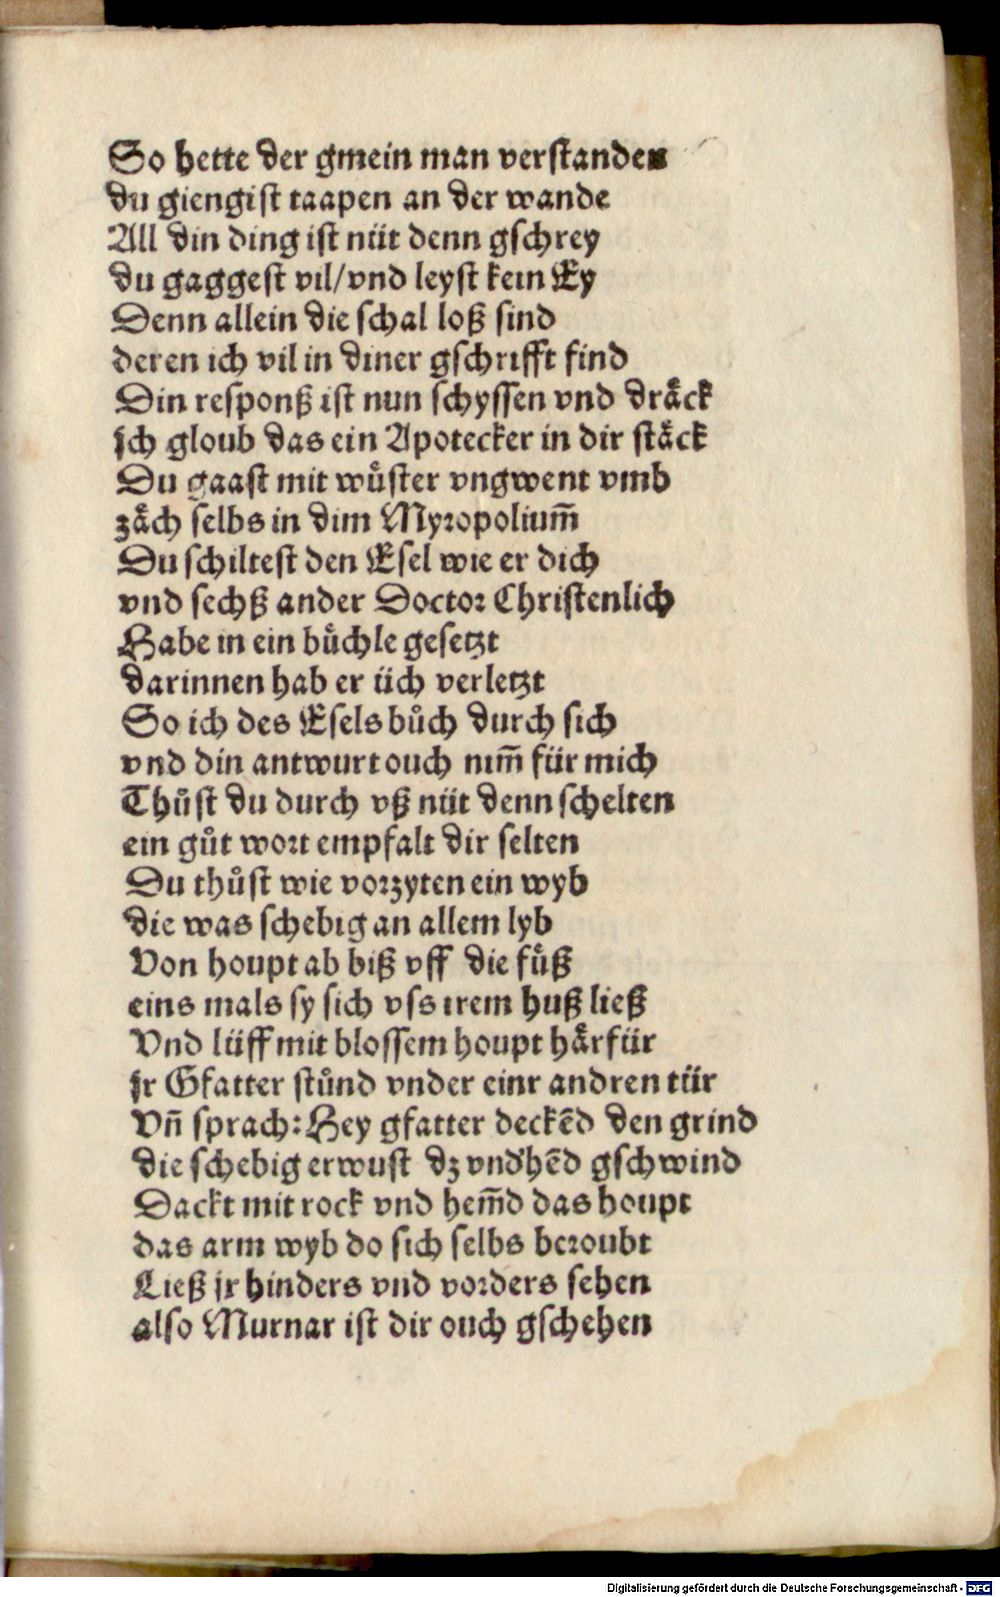 So hette der gmein man verstanden
du giengist taapen an der wande
All din ding ist nüt denn gschrey
du gaggest vil/vnd leyst kein Ey
Denn allein die schal loß sind
deren ich vil in diner gschrifft find
Din responß ist nun schyssen vnd dräck
ich gloub das ein Apotecker in dir stäck
Du gaast mit wůster vngwent vmb
zäch selbs in dim Myropolium̃
Du schiltest den Esel wie er dich
vnd sechß ander Doctor Christenlich
Habe in ein bůchle gesetzt
darinnen hab er üch verletzt
So ich des Esels bůch durch sich
vnd din antwurt ouch nim̃ für mich
Thůst du durch vß nüt denn schelten
ein gůt wort empfalt dir selten
Du thůst wie vorzyten ein wyb
die was schebig an allem lyb
Von houpt ab biß vff die fůß
eins mals sy sich vss irem huß ließ
Vnd lüff mit blossem houpt härfür
ir Gfatter stůnd vnder einr andren tür
Vñ sprach: Hey gfatter deckēd den grind
die schebig erwust dz vnd'hēd gschwind
Dackt mit rock vnd hem̃d das houpt
das arm wyb do sich selbs beroubt
Ließ ir hinders vnd vorders sehen
also Murnar ist dir ouch gschehen
Digitalisierung gefördert durch die Deutsche Forschungsgemeinschaft - DFG